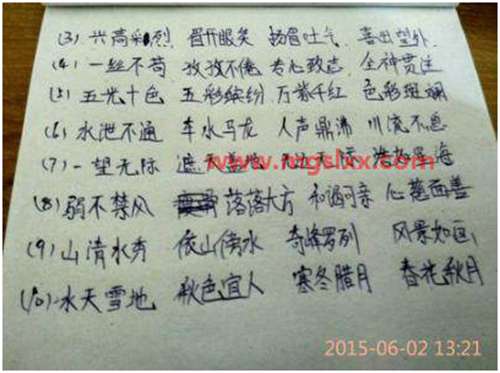 (3) 兴高彩烈 眉开眼笑 扬眉吐气 喜出望外
(4) 一丝不苟 孜孜不倦 专心致志 全神贯注
(5) 五光十色 五彩缤纷 万紫千红 色彩斑斓
(6) 水泄不通 车水马龙 人声鼎沸 川流不息
(7) 一望无际 遮天盖地
www.mgslxx.com
(8) 弱不禁风 落落大方 和谒可亲 心慈面善
(9) 山清水秀 依山傍水 奇峰罗列 风景如画
(10) 水天雪地 秋色宜人 寒冬腊月 春花秋月
2015-06-02 13:21